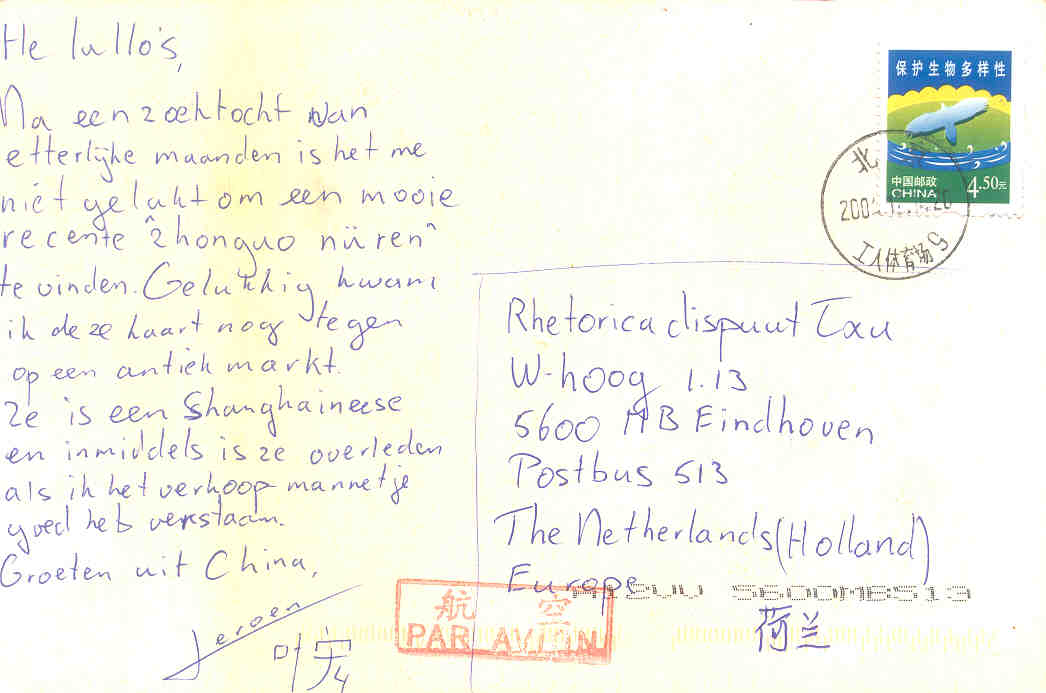 He lullo's,
Na een zoektocht van
etterlijke maanden is het me
niet gelukt om een mooie
recente "zhonguo nüren"
te vinden. Gelukkig kwam
ik deze kaart nog tegen
op een antiek markt.
Ze is een Shanghaineese
en inmiddels is ze overleden
als ik het verkoop mannetje
goed heb verstaan.
Groeten uit China,
Jeroen
保护生物多样性
中国邮政
CHINA
4.50元
北
工人体育场
Rhetorica dispuut Tau
W-hoog 1.13
5600 MB Eindhoven
Postbus 513
The Netherlands (Holland)
Europe
5600MB513
荷兰
航空
PAR AVION